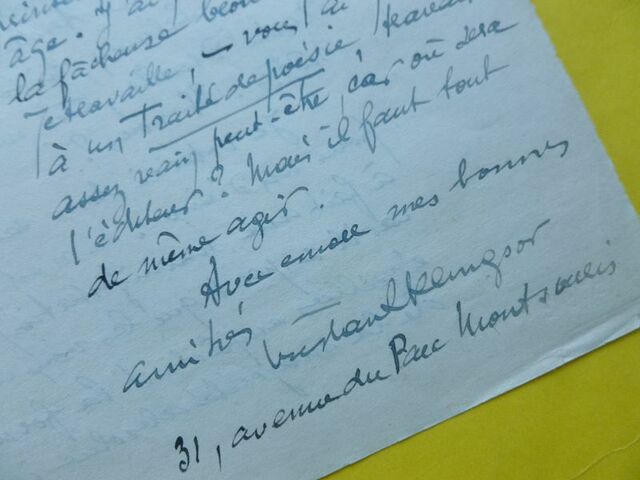 âge. j'ai
la fâcheuse
Je travaille, – vous l'ai
à un Traité de poésie, travail
assez vain peut-être, car où sera
l'éditeur? Mais il faut tout
de même agir.
Avec encore mes bonnes
amitiés Tristan Klingsor
31, avenue du Parc Montsouris